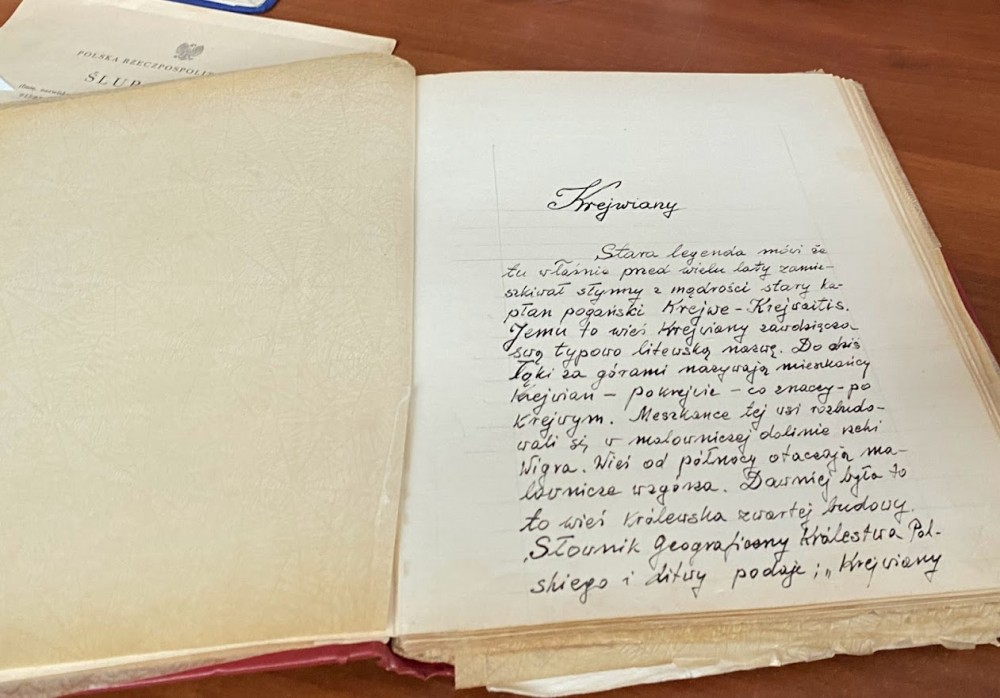 POLSKA RZECZPOSPOLIT
ŚLUB
Krejwiany
Stara legenda mówi że
tu właśnie przed wielu laty zamie-
szkiwał słynny z mądrości stary ka-
płan pogański Krejwe-Krejwaitis.
Jemu to wieś Krejwiany zawdzięcza
swą typowo litewską nazwę. Do dziś
łąki za górami nazywają mieszkańcy
Krejwian – Pokrejvie – co znaczy – po
Krejwym. Meszkańce tej wsi rozbudo-
wali się w malowniczej dolinie rzeki
Wigra. Wieś od północy otaczają ma-
lownicze wzgórza. Dawniej była to
to wieś Królewska zwartej budowy.
"Słownik Geograficzny Królestwa Pol-
skiego i Litwy podaje; „Krejwiany